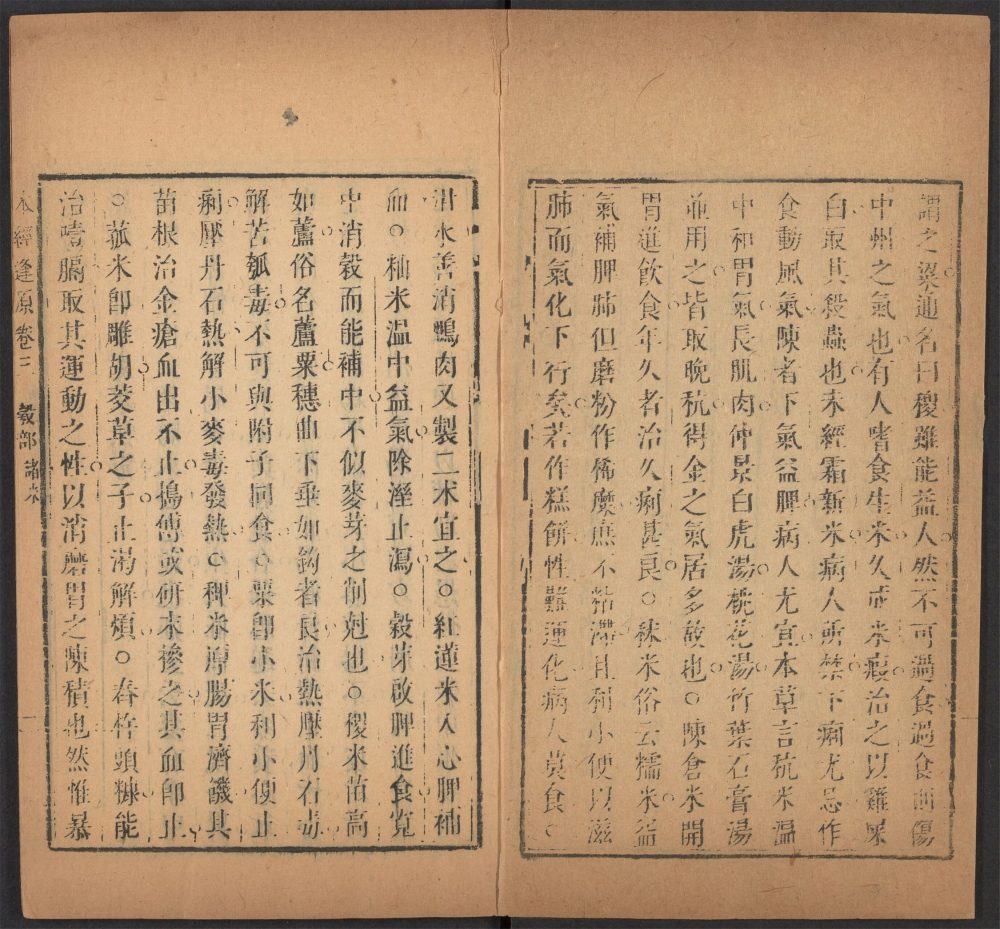 謂之粱通名曰稷雖能益人然不可過食過食則傷
中州之氣也有人嗜食生米久成米瘕治之以雞屎
白取其殺蟲也未經霜新米病人所禁下痢尤忌作
食動風氣陳者下氣益脾病人尤宜本草言秔米溫
中和胃氣長肌肉仲景白虎湯桃花湯竹葉石膏湯
並用之皆取晚秔得金之氣居多故也○陳倉米開
胃進飲食年久者治久痢甚良○秫米俗云糯米益
氣補脾肺但磨粉作稀麋庶不粘滯且利小便以滋
肺而氣化下行矣若作糕餅性難運化病人莫食○
泔水善消鴨肉又製二朮宜之○紅蓮米入心脾補
血○秈米溫中益氣除溼止瀉○穀芽啟脾進食寬
中消穀而能補中不似麥芽之削尅也○稷米苗高
如蘆俗名蘆粟穗曲下垂如鉤者良治熱壓丹石毒
解苦瓠毒不可與附子同食○粟卽小米利小便止
痢壓丹石熱解小麥毒發熱○稗米厚腸胃濟饑其
苗根治金瘡血出不止搗傅或研末摻之其血卽止
○菰米卽雕胡茭草之子止渴解煩○舂杵頭糠能
治噎膈取其運動之性以消磨胃之陳積也然惟暴
本經逢原卷三 穀部 諸米 一